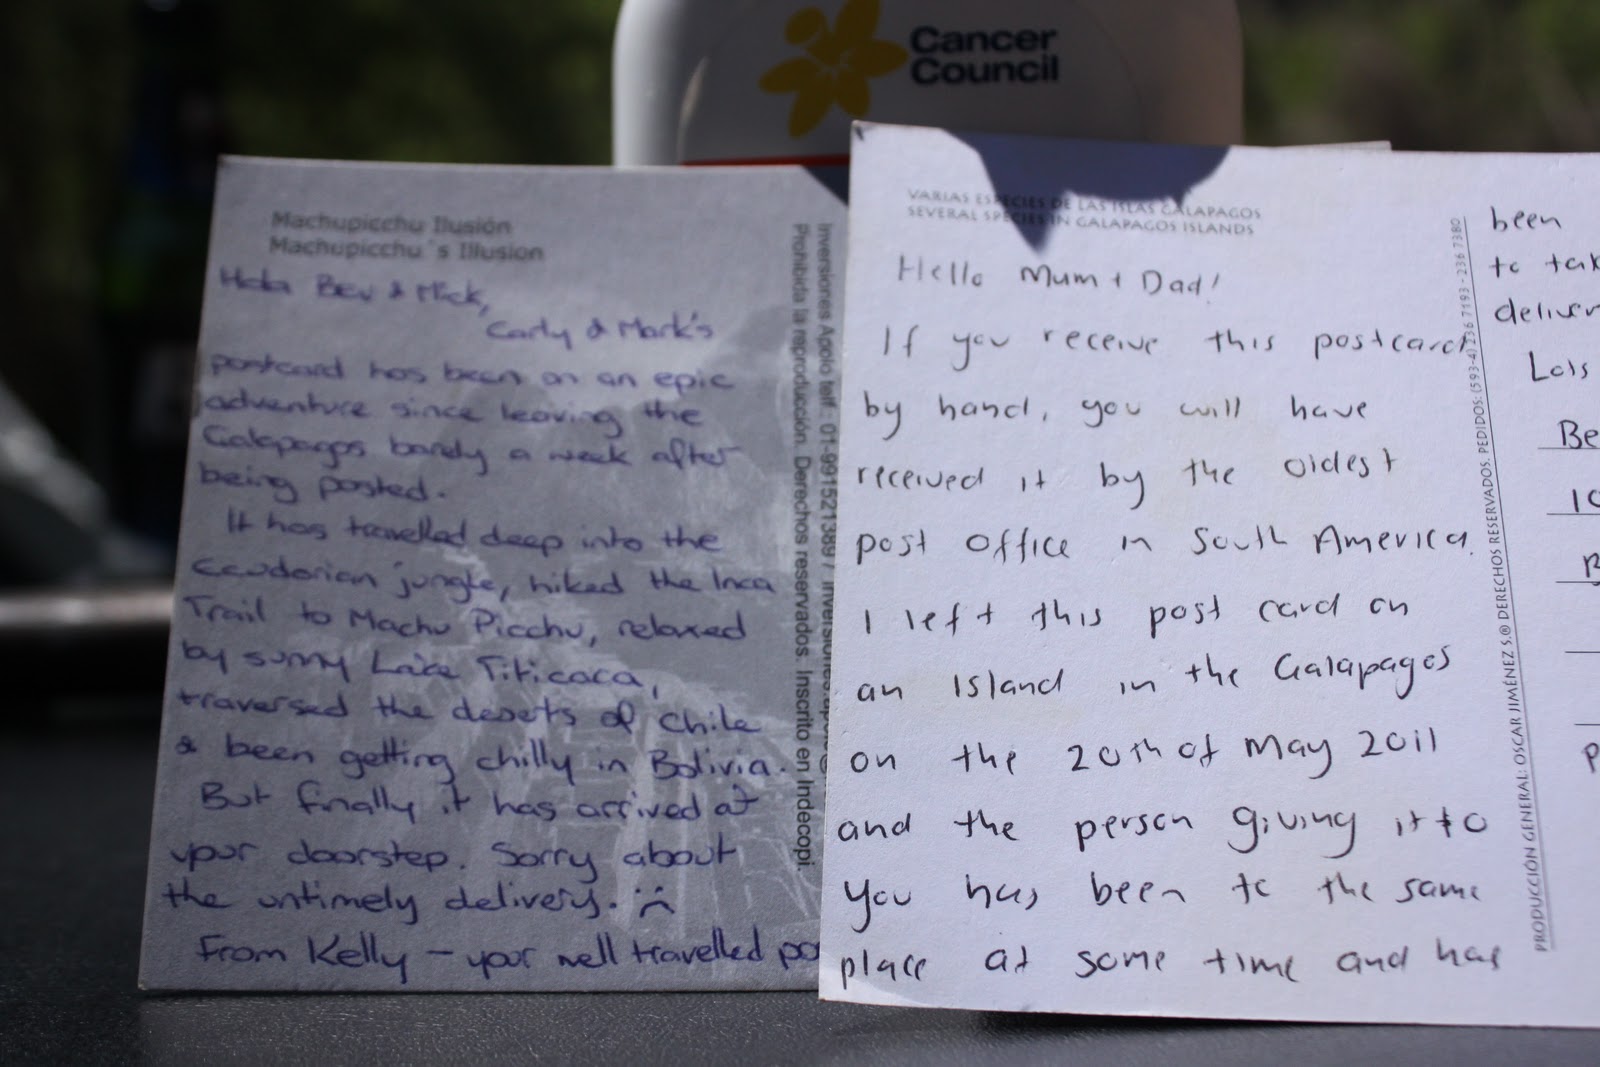 Cancer
Council
Machupicchu Ilusión
Machupicchu´s Illusion
Hola Bev & Mick,
Carly & Mark's
postcard has been on an epic
adventure since leaving the
Galapagos barely a week after
being posted.
It has travelled deep into the
Ecuadorian jungle, hiked the Inca
Trail to Machu Picchu, relaxed
by sunny Lake Titicaca,
traversed the deserts of Chile
& been getting chilly in Bolivia.
But finally it has arrived at
your doorstep. Sorry about
the untimely delivery. :(
From Kelly – your well travelled
Inversiones Apolo telf.: 01-991521389 /
Prohibida la reproducción. Derechos reservados. Inscrito en Indecopi.
VARIAS ESPECIES DE LAS ISLAS GALAPAGOS
SEVERAL SPECIES IN GALAPAGOS ISLANDS
Hello Mum + Dad!
If you receive this postcard
by hand, you will have
received it by the oldest
post office in South America.
I left this post card on
an Island in the Galapagos
on the 20th of May 2011
and the person giving it to
you has been to the same
place at some time and has
PRODUCCIÓN GENERAL: OSCAR JIMÉNEZ S.® DERECHOS RESERVADOS. PEDIDOS: (593-4) 236 7193 - 236 7380
been
to tak
deliver
Lots
Be
10
B
P